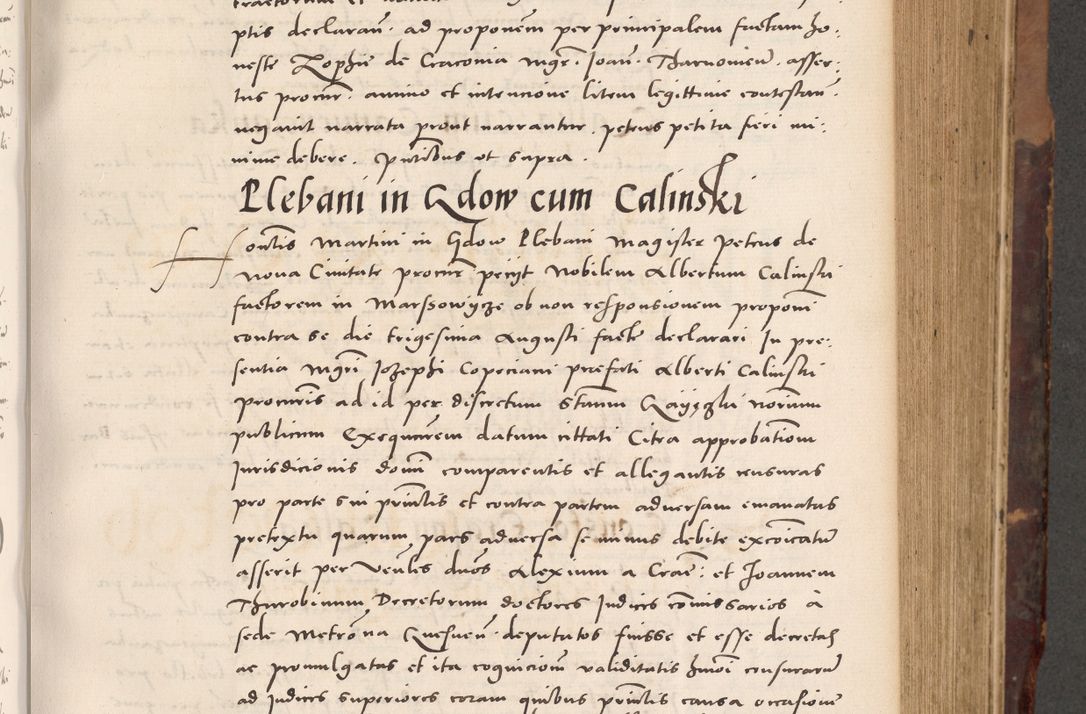 ptis declaran̄. ad proponem̄ per principalem factam ho:
neste Zophie de Cracovia mgr̄i. Joan̄. Tharnovien̄. asser:
tus procur̄. animo et intencione litem legittime contestan̄.
negavit narrata prout narrantur. petens petita fieri mi:
nime debere. p̄ntibus ut supra.
Plebani in Gdow cum Calinski
Hon̄tis Martini in Gdow Plebani Magister Petrus de
Nova Civitate procur̄ pecijt Nobilem Albertum Calinski
factorem in Marssowijcze ob non responsionem proponi
contra se die trigesima Augusti facte declarari In pre:
sentia Mgr̄i Jozephi Coprciani prefati Alberti Calinski
procur̄is ad id per discretum Stan̄m notarium
publicum Exequcīrem datum cittati Citra approbatiom̄
Jurisdicionis dom̄i comparentis et allegantis censuras
pro parte sui prin̄clis et contra partem adversam emanatas
pretextu quarum pars adversa se minus debite excōicatū
asserit per Ven̄les dnōs Alexium a Crac̄: et Joannem
Thurobinum Decretorum doctores Judices com̄issarios a
sede Metrōna Gnesnen̄. deputatos fuisse et esse decretas
ac promulgatas et ita cogniciom̄ validitatis hmōi censurarū
ad Judices superiores coram quibus prin̄clis causa occasiom̄